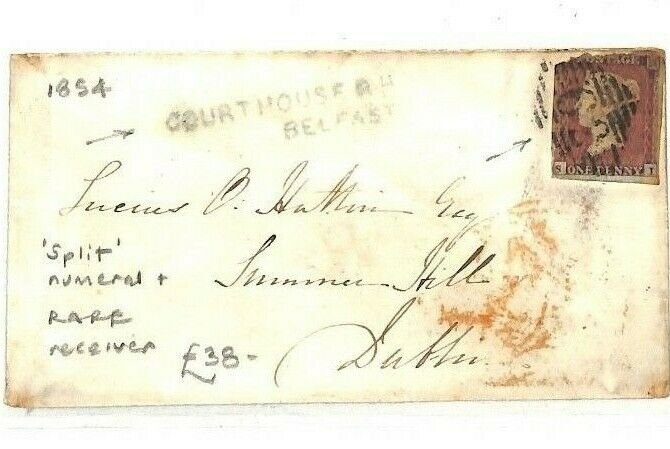 1854
COURTHOUSE R H
BELFAST
POSTAGE
ONE PENNY
Lucius O. Hutton Esq
Summer Hill
Dublin
'Split'
numeral +
RARE
receiver
£38-